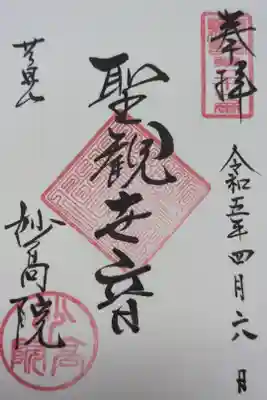 奉拝
令和五年四月六日
聖観世音
芥見
妙高院